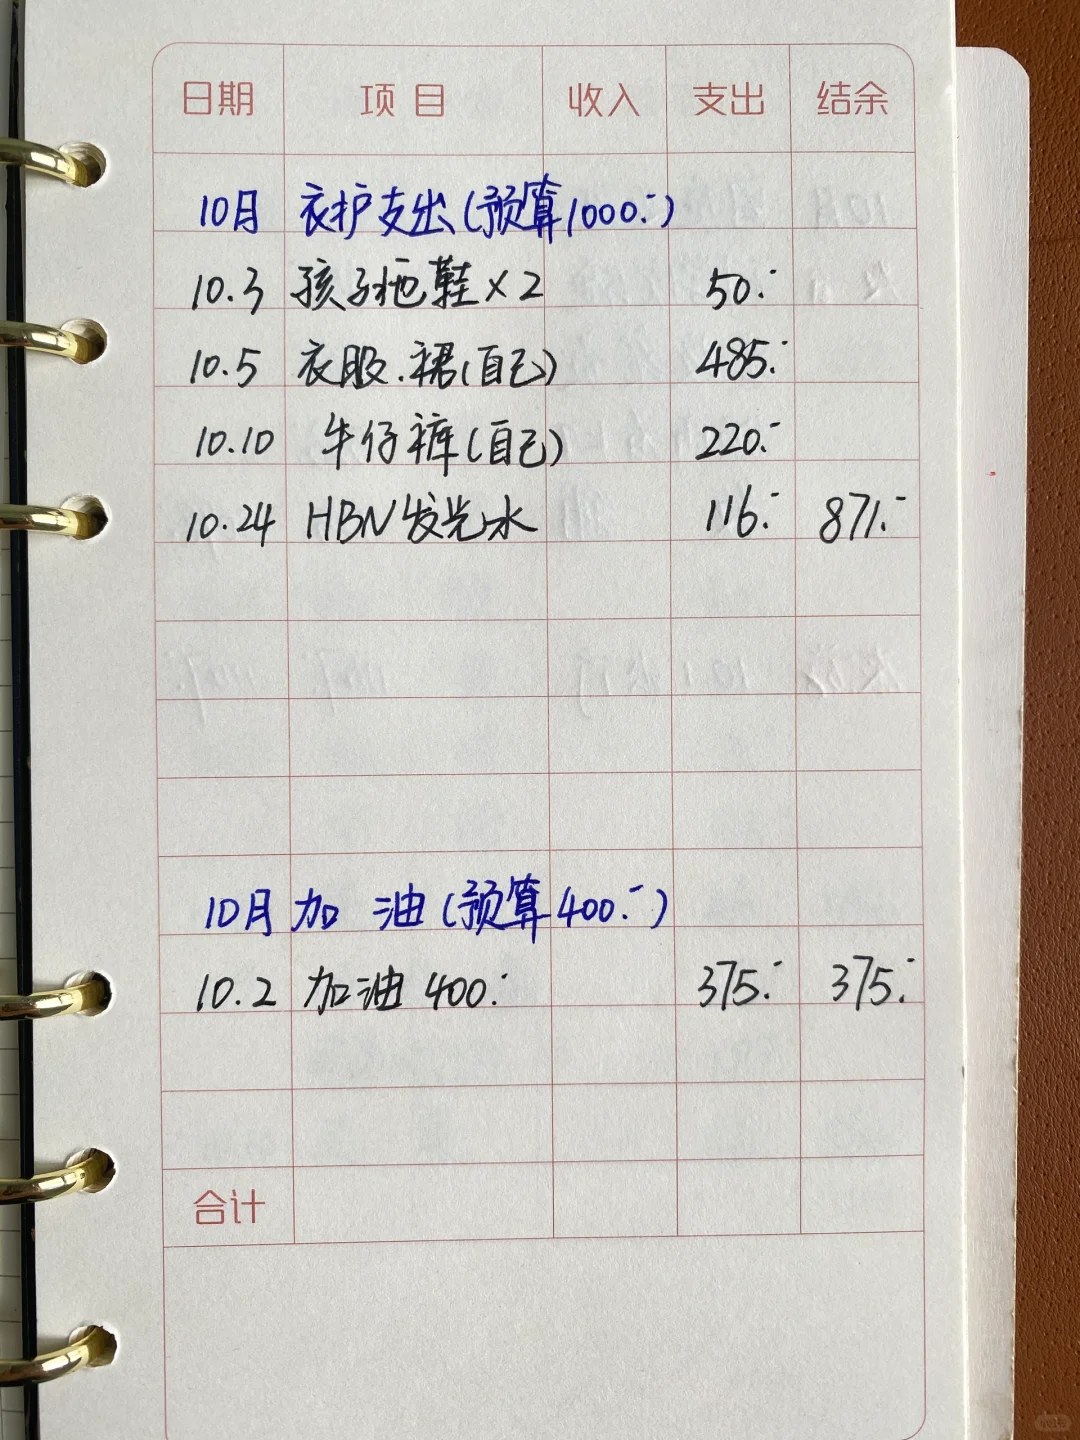 日期 项目 收入 支出 结余
10月 衣护支出(预算1000.-)
10.3 孩子拖鞋×2 50.-
10.5 衣服.裙(自己) 485.-
10.10 牛仔裤(自己) 220.-
10.24 HBN发光水 116.- 871.-
10月 加油(预算400.-)
10.2 加油400.- 375.- 375.-
合计